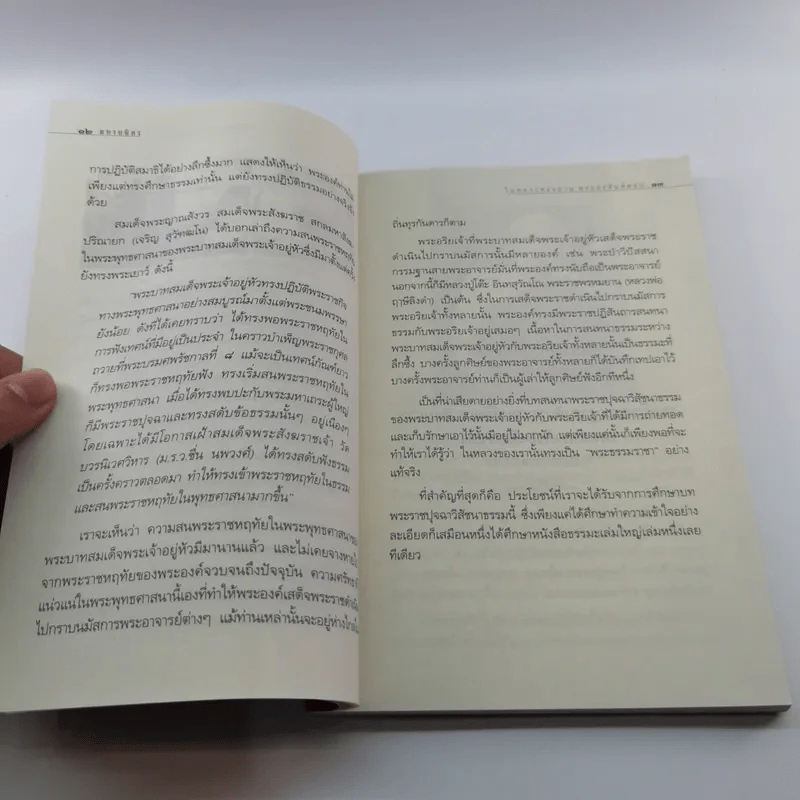 ๑๒ อหรอธิลร
การปฏิบัติสมาธิได้อย่างลึกซึ้งมาก แสดงให้เห็นว่า พระองค์ท่าน
เพียงแต่ทรงศึกษาธรรมเท่านั้น แต่ยังทรงปฏิบัติธรรมอย่างจริงจัง
ด้วย
สมเด็จพระญาณสังวร สมเด็จพระสังฆราช สกลมหาสังฆ
ปริณายก (เจริญ สุวัฑฒโน) ได้บอกเล่าถึงความสนพระราชหฤทัย
ในพระพุทธศาสนาของพระบาทสมเด็จพระเจ้าอยู่หัวซึ่งมีมาตั้งแต่ครั้ง
ยังทรงพระเยาว์ ดังนี้
"พระบาทสมเด็จพระเจ้าอยู่หัวทรงปฏิบัติพระราชกิจ
ทางพระพุทธศาสนาอย่างสมบูรณ์มาตั้งแต่พระชนมพรรษา
ยังน้อย ดังที่ได้เคยทราบว่า ได้ทรงพอพระราชหฤทัยใน
การฟังเทศน์ที่มีอยู่เป็นประจำ ในคราวบำเพ็ญพระราชกุศล
ถวายที่พระบรมศพรัชกาลที่ ๘ แม้จะเป็นเทศน์กัณฑ์ยาว
ก็ทรงพอพระราชหฤทัยฟัง ทรงเริ่มสนพระราชหฤทัยใน
พระพุทธศาสนา เมื่อได้ทรงพบปะกับพระมหาเถระผู้ใหญ่
ก็มีพระราชปุจฉาและทรงสดับข้อธรรมนั้นๆ อยู่เนืองๆ
โดยเฉพาะได้มีโอกาสเฝ้าสมเด็จพระสังฆราชเจ้า วัด
บวรนิเวศวิหาร (ม.ร.ว.ชื่น นพวงศ์) ได้ทรงสดับฟังธรรม
เป็นครั้งคราวตลอดมา ทำให้ทรงเข้าพระราชหฤทัยในธรรม
และสนพระราชหฤทัยในพุทธศาสนามากขึ้น"
เราจะเห็นว่า ความสนพระราชหฤทัยในพระพุทธศาสนาของ
พระบาทสมเด็จพระเจ้าอยู่หัวมีมานานแล้ว และไม่เคยจางหายไป
จากพระราชหฤทัยของพระองค์จวบจนถึงปัจจุบัน ความศรัทธา
แน่วแน่ในพระพุทธศาสนานี้เองที่ทำให้พระองค์เสด็จพระราชดำเนิน
ไปกราบนมัสการพระอาจารย์ต่างๆ แม้ท่านเหล่านั้นจะอยู่ห่างไกลใน
๑๓
ถิ่นทุรกันดารก็ตาม
พระอริยเจ้าที่พระบาทสมเด็จพระเจ้าอยู่หัวเสด็จพระราช
ดำเนินไปกราบนมัสการนั้นมีหลายองค์ เช่น พระป่าวิปัสสนา
กรรมฐานสายพระอาจารย์มั่นที่พระองค์ทรงนับถือเป็นพระอาจารย์
นอกจากนี้ก็มีหลวงปู่โต๊ะ อินทสุวัณโณ พระราชพรหมยาน (หลวงพ่อ
ฤาษีลิงดำ) เป็นต้น ซึ่งในการเสด็จพระราชดำเนินไปกราบนมัสการ
พระอริยเจ้าทั้งหลายนั้น พระองค์ทรงมีพระราชปฏิสันถารสนทนา
ธรรมกับพระอริยเจ้าอยู่เสมอๆ เนื้อหาในการสนทนาธรรมระหว่าง
พระบาทสมเด็จพระเจ้าอยู่หัวกับพระอริยเจ้าทั้งหลายนั้นเป็นธรรมะที่
ลึกซึ้ง บางครั้งลูกศิษย์ของพระอาจารย์ทั้งหลายก็ได้บันทึกเทปเอาไว้
บางครั้งพระอาจารย์ท่านก็เป็นผู้เล่าให้ลูกศิษย์ฟังอีกทีหนึ่ง
เป็นที่น่าเสียดายอย่างยิ่งที่บทสนทนาพระราชปุจฉาวิสัชนาธรรม
ของพระบาทสมเด็จพระเจ้าอยู่หัวกับพระอริยเจ้าที่ได้มีการถ่ายทอด
และเก็บรักษาเอาไว้นั้นมีอยู่ไม่มากนัก แต่เพียงแค่นั้นก็เพียงพอที่จะ
ทำให้เราได้รู้ว่า ในหลวงของเรานั้นทรงเป็น "พระธรรมราชา" อย่าง
แท้จริง
ที่สำคัญที่สุดก็คือ ประโยชน์ที่เราจะได้รับจากการศึกษาบท
พระราชปุจฉาวิสัชนาธรรมนี้ ซึ่งเพียงแค่ได้ศึกษาทำความเข้าใจอย่าง
ละเอียดก็เสมือนหนึ่งได้ศึกษาหนังสือธรรมะเล่มใหญ่เล่มหนึ่งเลย
ทีเดียว